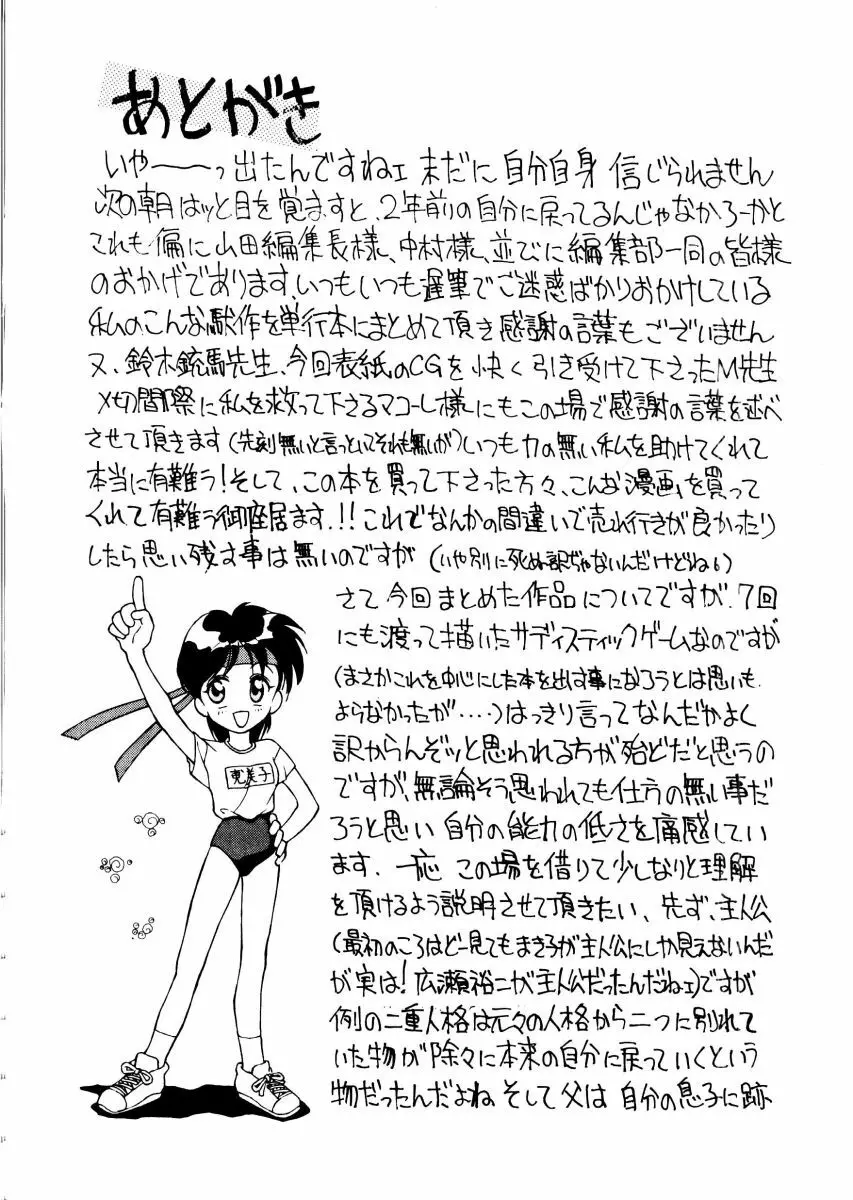 あとがき
いやーーっ出たんですねェ 未だに自分自身 信じられません
次の朝ハッと目を覚ますと、2年前の自分に戻ってるんじゃなかろーかと
これも偏に山田編集長様、中村様、並びに編集部一同の皆様
のおかげであります、いつもいつも遅筆でご迷惑ばかりおかけしている
私のこんな駄作を単行本にまとめて頂き感謝の言葉もございません
又、鈴木銃馬先生、今回表紙のCGを快く引き受けて下さったM先生
〆切間際に私を救って下さるマコーレ様にもこの場で感謝の言葉を述べ
させて頂きます(先刻無いと言っといてそれも無いが)いつも力の無い私を助けてくれて
本当に有難う!そして、この本を買って下さった方々、こんな漫画を買って
くれて有難う御座居ます.!!これでなんかの間違いで売れ行きが良かったり
したら思い残す事は無いのですが(いや別に死ぬ訳ぢゃないんだけどね)
さて今回まとめた作品についてですが、7回
にも渡って描いたサディスティックゲームなのですが
(まさかこれを中心にした本を出す事になろうとは思いも
よらなかったが・・・・)はっきり言ってなんだかよく
訳からんぞッと思われる方が殆どだと思うの
ですが、無論そう思われても仕方の無い事だ
ろうと思い 自分の能力の低さを痛感してい
ます. 一応 この場を借りて少しなりと理解
を頂けるよう説明させて頂きたい、先ず、主人公
(最初のころはどー見てもまき子が主人公にしか見えないんだ
が実は!広瀬裕二が主人公だったんだねェ)ですが
例の二重人格は元々の人格から二つに別れて
いた物が除々に本来の自分に戻っていくという
物だったんだよね そして父は 自分の息子に跡
恵美子